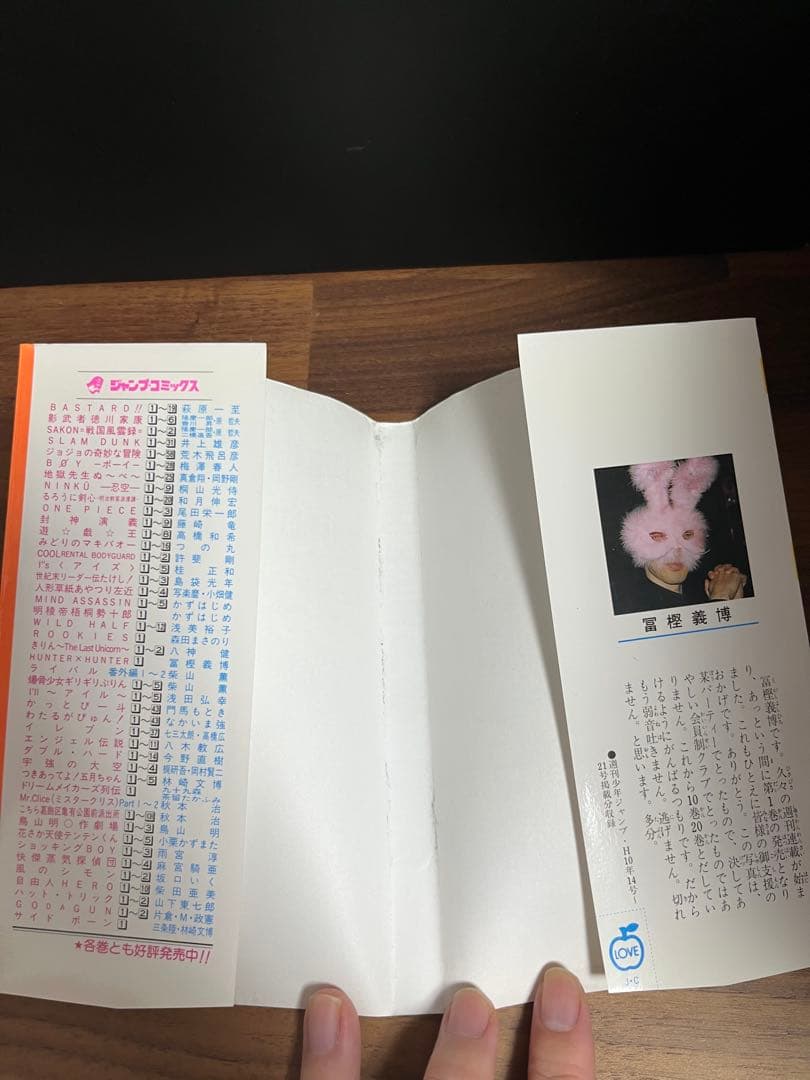 ジャンプ・コミックス
BASTARD!! 1〜19 萩原一至
影武者徳川家康 1〜6 隆慶一郎・原哲夫
SAKON=戦国風雲録= 1〜2 隆慶一郎・原哲夫
SLAM DUNK 1〜31 井上雄彦
ジョジョの奇妙な冒険 荒木飛呂彦
BØY―ボーイ― 梅澤春人
地獄先生ぬ〜べ〜 真倉翔・岡野剛
NINKŪ―忍空― 1〜9 桐山光侍
るろうに剣心・明治剣客浪漫譚・ 和月伸宏
ONE PIECE 1〜3 尾田栄一郎
封神演義 1〜9 藤崎竜
遊☆戯☆王 1〜8 高橋和希
みどりのマキバオー つの丸
COOL RENTAL BODYGUARD 1〜2 許斐剛
I"s〈アイズ〉 1〜5 桂正和
世紀末リーダー伝たけし! 1〜3 島袋光年
人形草紙あやつり左近 1〜4 写楽麿・小畑健
MIND ASSASSIN 1〜5 かずはじめ
明稜帝梧桐勢十郎 1 かずはじめ
WILD HALF 浅美裕子
ROOKIES 1 森田まさのり
きりん〜The Last Unicorn〜 1〜2 八神健
HUNTER×HUNTER 1 冨樫義博
ライバル 番外編1〜2 柴山薫
爆骨少女ギリギリぷりん 1〜5 柴山薫
I'll〜アイル〜 1〜5 浅田弘幸
かっとび一斗 門馬もとき
わたるがぴゅん! なかいま強
イレブン 七三太朗・高橋広
エンジェル伝説 八木教広
ダブル・ハード 今野直樹
宇強の大空 1〜4 梶研吾・岡村賢二
つきあってよ!五月ちゃん 1〜5 林崎文博
ドリームメイカーズ列伝 1
Mr.Clice(ミスタークリス) Part1〜2 秋本治
こちら葛飾区亀有公園前派出所 秋本治
鳥山明○作劇場 1〜3 鳥山明
花さか天使テンテンくん 1〜5 小栗かずまた
ショッキングBOY 1〜3 雨宮淳
快傑蒸気探偵団 1〜4 麻宮騎亜
風のシモン 1〜2 坂口いく
自由人HERO 柴田亜美
ハット・トリック 山下東七郎
GOD A GUN 1〜2 片倉・M・政憲
サイドボーン 1 三条陸・林崎文博
★各巻とも好評発売中!!
冨樫義博
冨樫義博です。久々の週刊連載が始ま
り、あっという間に第1巻の発売となり
ました。これもひとえに皆様の御支援の
おかげです。ありがとう。この写真は、
某パーティーでとったもので、決してあ
やしい会員制クラブでとったものではあ
りません。これから10巻20巻とだしてい
けるようにがんばるつもりです。だから
もう弱音吐きません。逃げません。切れ
ません。と思います。多分。
●週刊少年ジャンプ・H10年14号〜
21号掲載分収録
LOVE
J・C